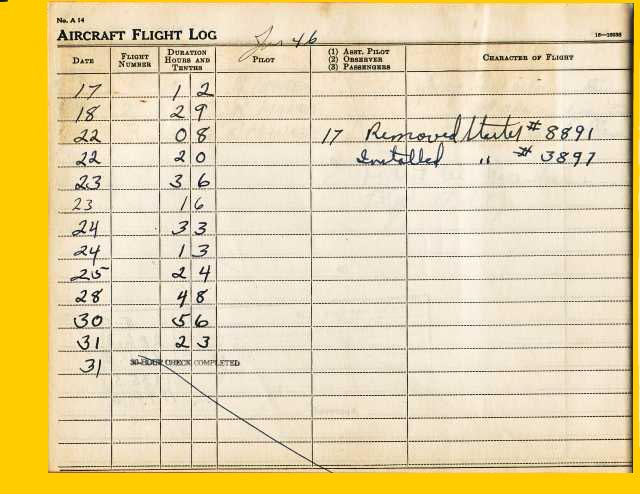 No. A 14
AIRCRAFT FLIGHT LOG
Jan 46
16—16038
DATE FLIGHT NUMBER DURATION HOURS AND TENTHS PILOT (1) ASST. PILOT (2) OBSERVER (3) PASSENGERS CHARACTER OF FLIGHT
17 1 2
18 2 9
22 0 8 17 Removed Starter # 8891
22 2 0 Installed " # 3897
23 3 6
23 1 6
24 3 3
24 1 3
25 2 4
28 4 8
30 5 6
31 2 3
31 30-HOUR CHECK COMPLETED